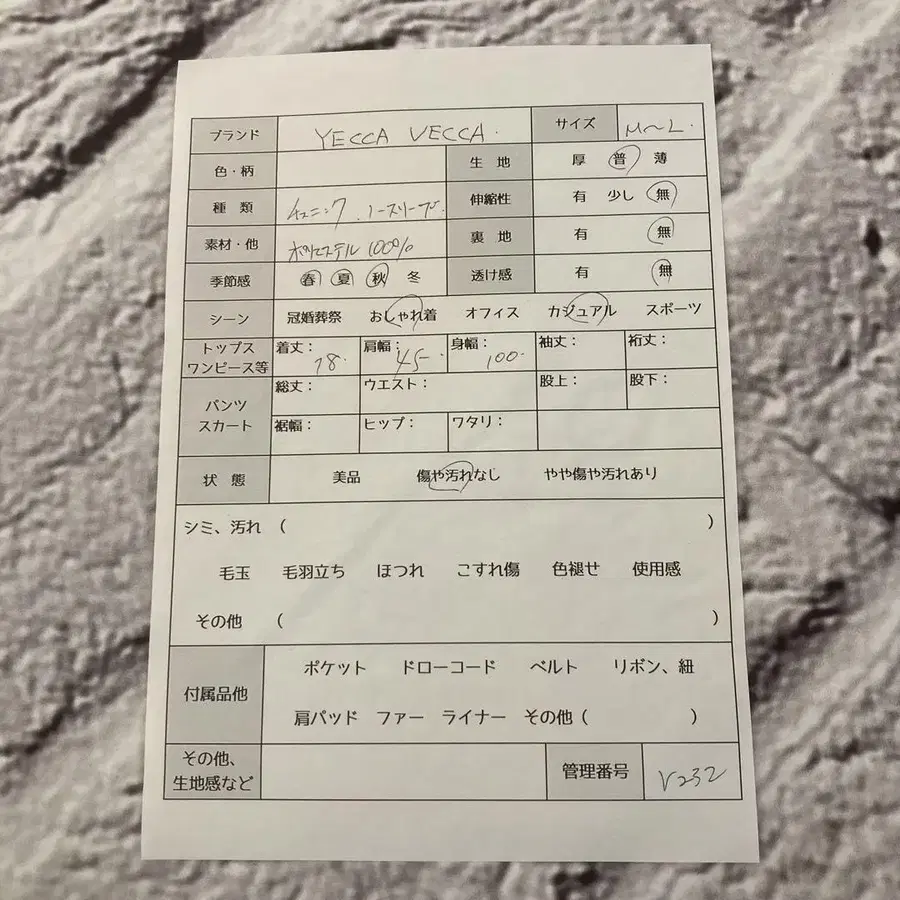 ブランド YECCA VECCA. サイズ M〜L.
色・柄 生 地 厚 普 薄
種 類 チュニック . ノースリーブ. 伸縮性 有 少し 無
素材・他 ポリエステル 100% 裏 地 有 無
季節感 春 夏 秋 冬 透け感 有 無
シーン 冠婚葬祭 おしゃれ着 オフィス カジュアル スポーツ
トップス
ワンピース等 着丈: 78. 肩幅: 45. 身幅: 100. 袖丈: 裄丈:
パンツ
スカート 総丈: ウエスト: 股上: 股下:
裾幅: ヒップ: ワタリ:
状 態 美品 傷や汚れなし やや傷や汚れあり
シミ、汚れ ( )
毛玉 毛羽立ち ほつれ こすれ傷 色褪せ 使用感
その他 ( )
付属品他 ポケット ドローコード ベルト リボン、紐
肩パッド ファー ライナー その他 ( )
その他、
生地感など 管理番号 V232